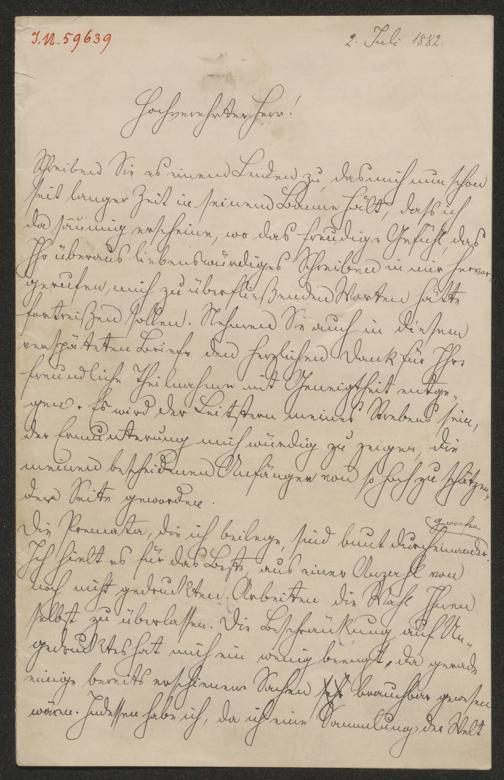 I.N. 59639
2. Juli 1882.
Hochverehrter Herr!
Schreiben Sie es einem Leiden zu, das mich nun schon
seit langer Zeit in seinem Banne hält, dass ich
da säumig erscheine, wo das freudige Gefühl, das
Ihr überaus liebenswürdiges Schreiben in mir hervor-
gerufen, mich zu überfließenden Worten hätte
fortreißen sollen. Nehmen Sie auch in diesem
verspäteten Briefe den herzlichen Dank für Ihre
freundliche Theilnahme mit Geneigtheit entge-
gen. Es wird der Leitstern meines Strebens sein,
der Ermunterung mich würdig zu zeigen, die
meinen bescheidenen Anfängen von so hoch zu schätzen-
der Seite geworden.
Die Poemata, die ich beilege, sind bunt durcheinander
geworfen.
Ich hielt es für das Beste, aus einer Anzahl von
noch nicht gedruckten Arbeiten die Wahl Ihnen
selbst zu überlassen. Die Beschränkung auf Un-
gedrucktes hat mich ein wenig beengt, da gerade
einige bereits erschienene Sachen brauchbar gewesen
wären. Indessen habe ich, da ich eine Sammlung der Welt